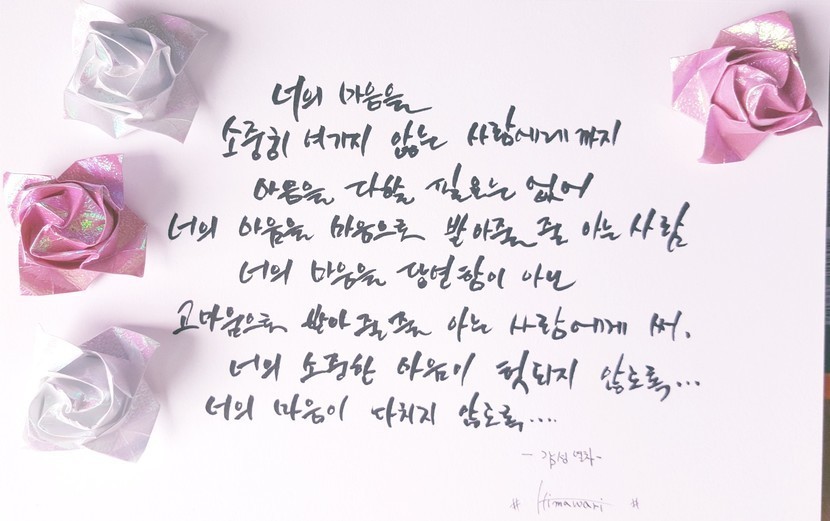 너의 마음을
소중히 여기지 않는 사람에게까지
마음을 다할 필요는 없어
너의 마음을 마음으로 받아줄 줄 아는 사람
너의 마음을 당연함이 아닌
고마움으로 받아 줄 줄 아는 사람에게 써.
너의 소중한 마음이 헛되지 않도록...
너의 마음이 다치지 않도록....
- 감성 열차 -
# Himawari #